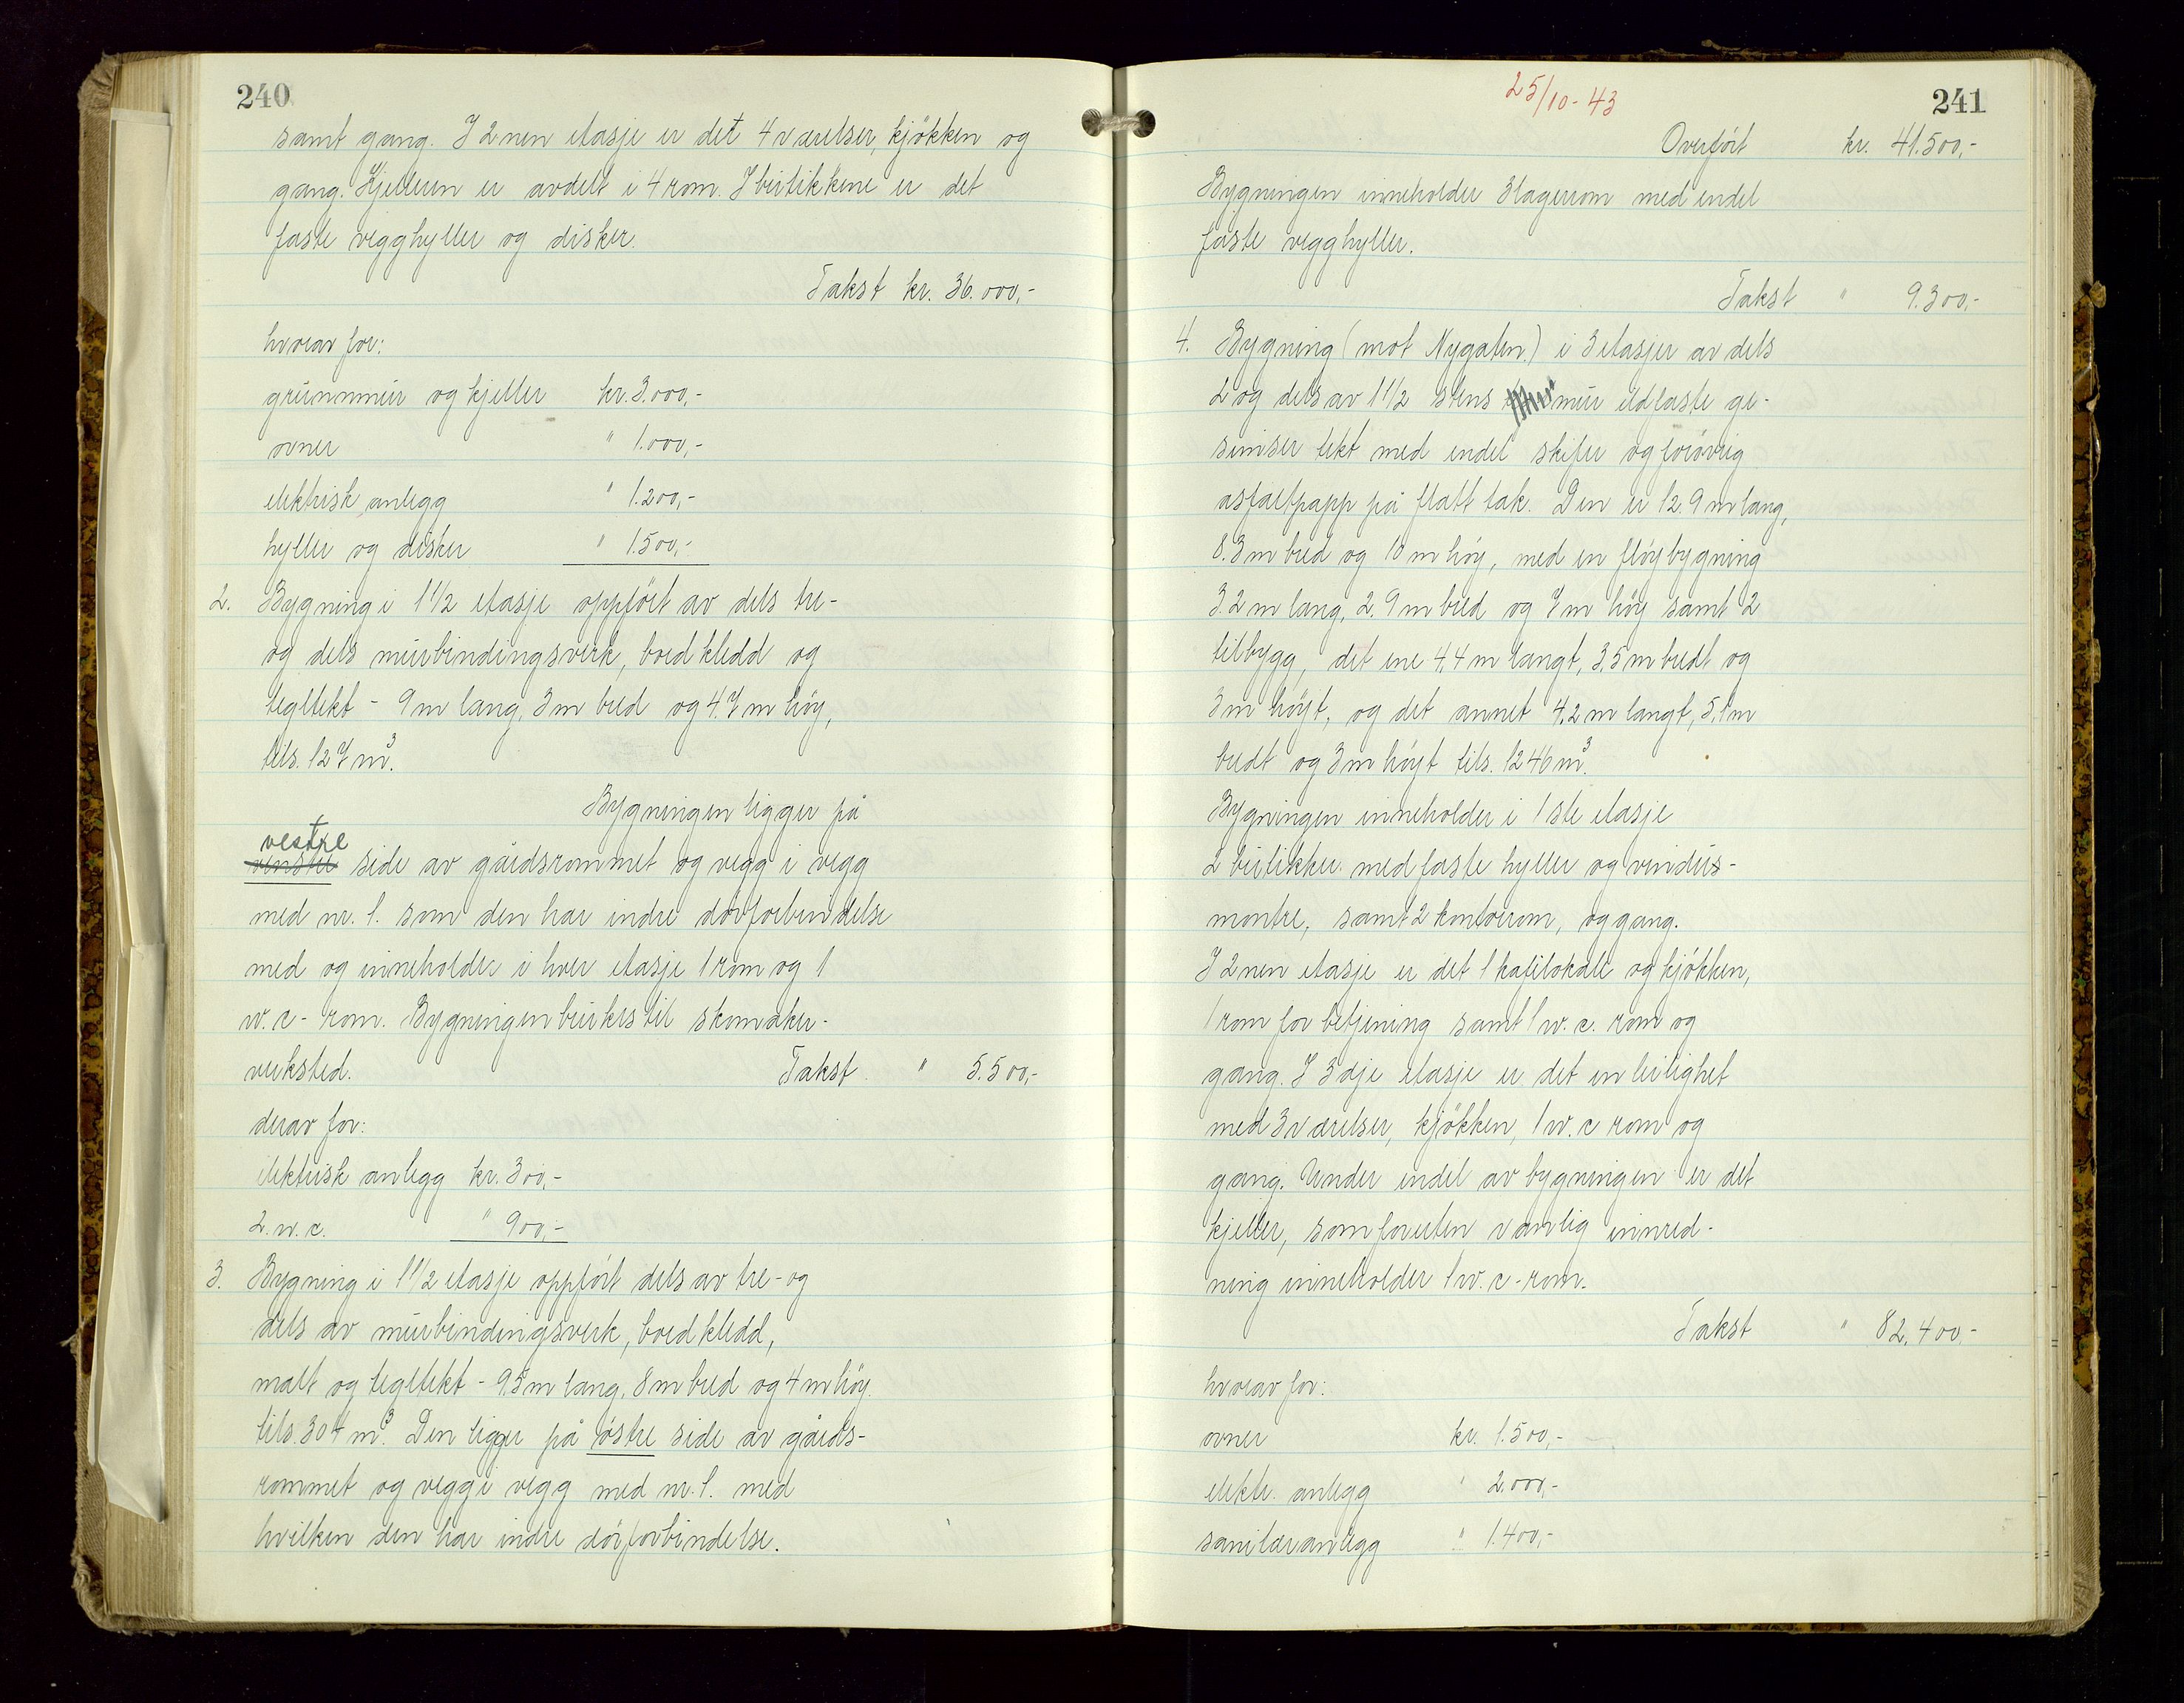 240
samt gang. I 2nen etasje er det 4 værelser, kjøkken og
gang. Kjelleren er avdelt i 4 rom. I butikkene er det
faste vegghyller og disker.
Takst kr. 36.000,-
hvorav for:
grunnmur og kjeller kr. 3.000,-
ovner " 1.000,-
elektrisk anlegg " 1.200,-
hyller og disker " 1.500,-
2. Bygning i 1 1/2 etasje oppført av dels tre-
og dels murbindingsverk, bordkledd og
tegltekt - 9 m lang, 3 m bred og 4.7 m høy,
tils. 127 m³.
Bygningen ligger på
vestre
venstre side av gårdsrommet og vegg i vegg
med nr. 1. som den har indre dørforbindelse
med og inneholder i hver etasje 1 rom og 1
w.c - rom. Bygningen brukes til skomaker-
verksted. Takst " 5.500,-
derav for:
elektrisk anlegg kr. 300,-
2. w.c. " 900,-
3. Bygning i 1 1/2 etasje oppført dels av tre- og
dels av murbindingsverk, bordkledd,
malt og tegltekt - 9.5 m lang, 8 m bred og 4 m høy.
tils. 304 m³. Den ligger på østre side av gårds-
rommet og vegg i vegg med nr. 1. med
hvilken den har indre dørforbindelse.
25/10-43
241
Overført kr. 41.500,-
Bygningen inneholder 3 lagerrom med endel
faste vegghyller.
Takst " 9.300,-
4. Bygning (mot Nygaten.) i 3 etasjer av dels
2 og dels av 1 1/2 stens mur ildfaste ge-
simser tekt med endel skifer og forøvrig
asfaltpapp på flatt tak. Den er 12.9 m lang,
8.3 m bred og 10 m høy, med en fløybygning
3.2 m lang, 2.9 m bred og 7 m høy samt 2
tilbygg, det ene 4,4 m langt, 3,5 m bredt og
3 m høyt, og det annet 4,2 m langt, 5,1 m
bredt og 3 m høyt tils. 1246 m³.
Bygningen inneholder i 1ste etasje
2 butikker med faste hyller og vindus-
montre, samt 2 kontorrom, og gang.
I 2nen etasje er det 1 kafélokale og kjøkken,
1 rom for betjening samt 1 w.c. rom og
gang. I 3dje etasje er det en leilighet
med 3 værelser, kjøkken, 1 w.c rom og
gang. Under endel av bygningen er det
kjeller, som foruten vanlig innred-
ning inneholder 1 w.c-rom.
Takst " 82.400,-
hvorav for:
ovner kr. 1.500,-
elektr. anlegg " 2.000,-
sanitæranlegg " 1.400,-